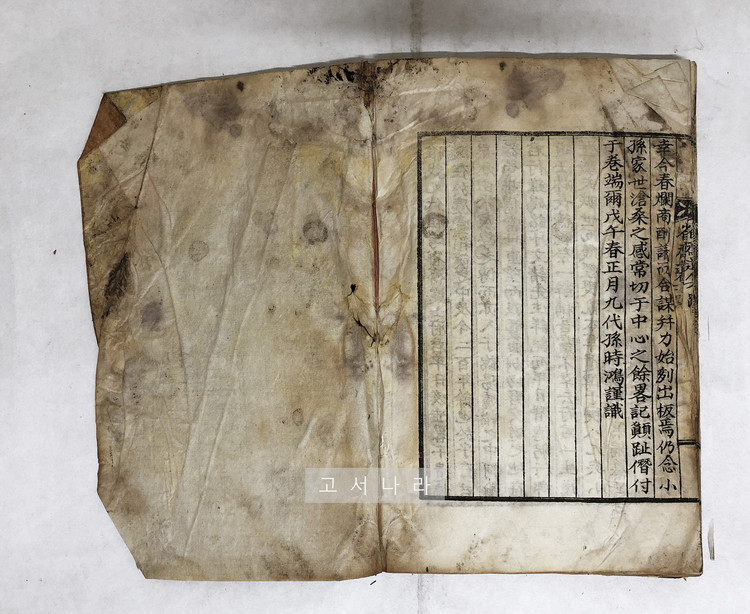 幸今春爛商剛諸以合謀幷力始剞出板焉仍念小
孫家世滄桑之感常切于中心之餘畧記顚趾僭付
于卷端爾戊午春正月九代孫時鴻謹識
고서나라